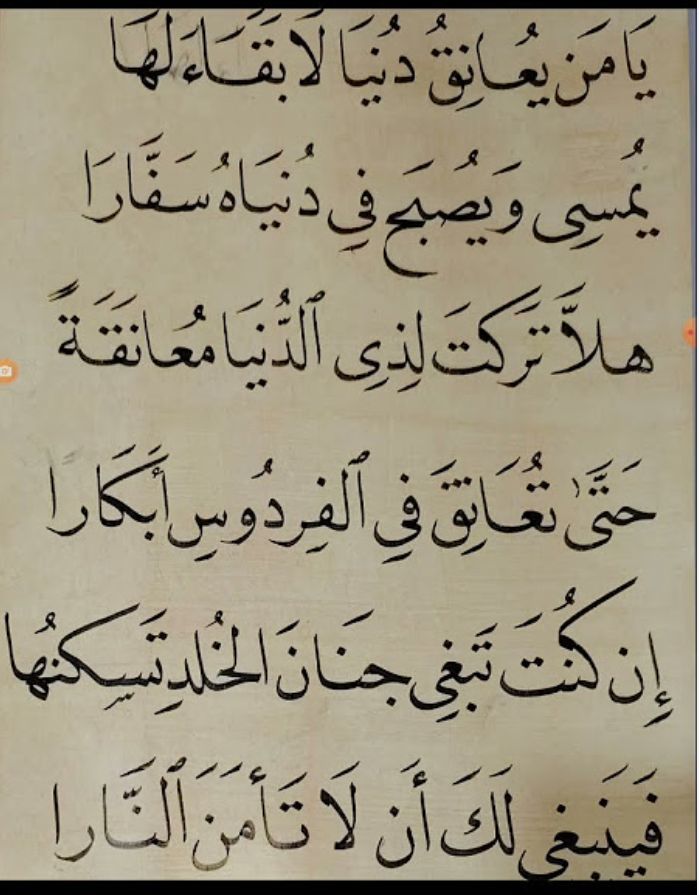 يَا مَن يُعَانِقُ دُنيَا لَا بَقَاءَ لَهَا
يُمسِى وَيُصبَح فِي دُنيَاهُ سَفَّارَا
هلاَّ تَرَكتَ لِذِى ٱلدُّنيَا مُعَانَقَةً
حَتَّىٰ تُعَانِقَ فِي ٱلفِردُوسِ أَبكَارا
إِن كُنتَ تَبغِي جنَانَ الخُلدِ تَسكنُها
فَيَنبَغي لَكَ أَن لَا تَأمَنَ ٱلنَّارا